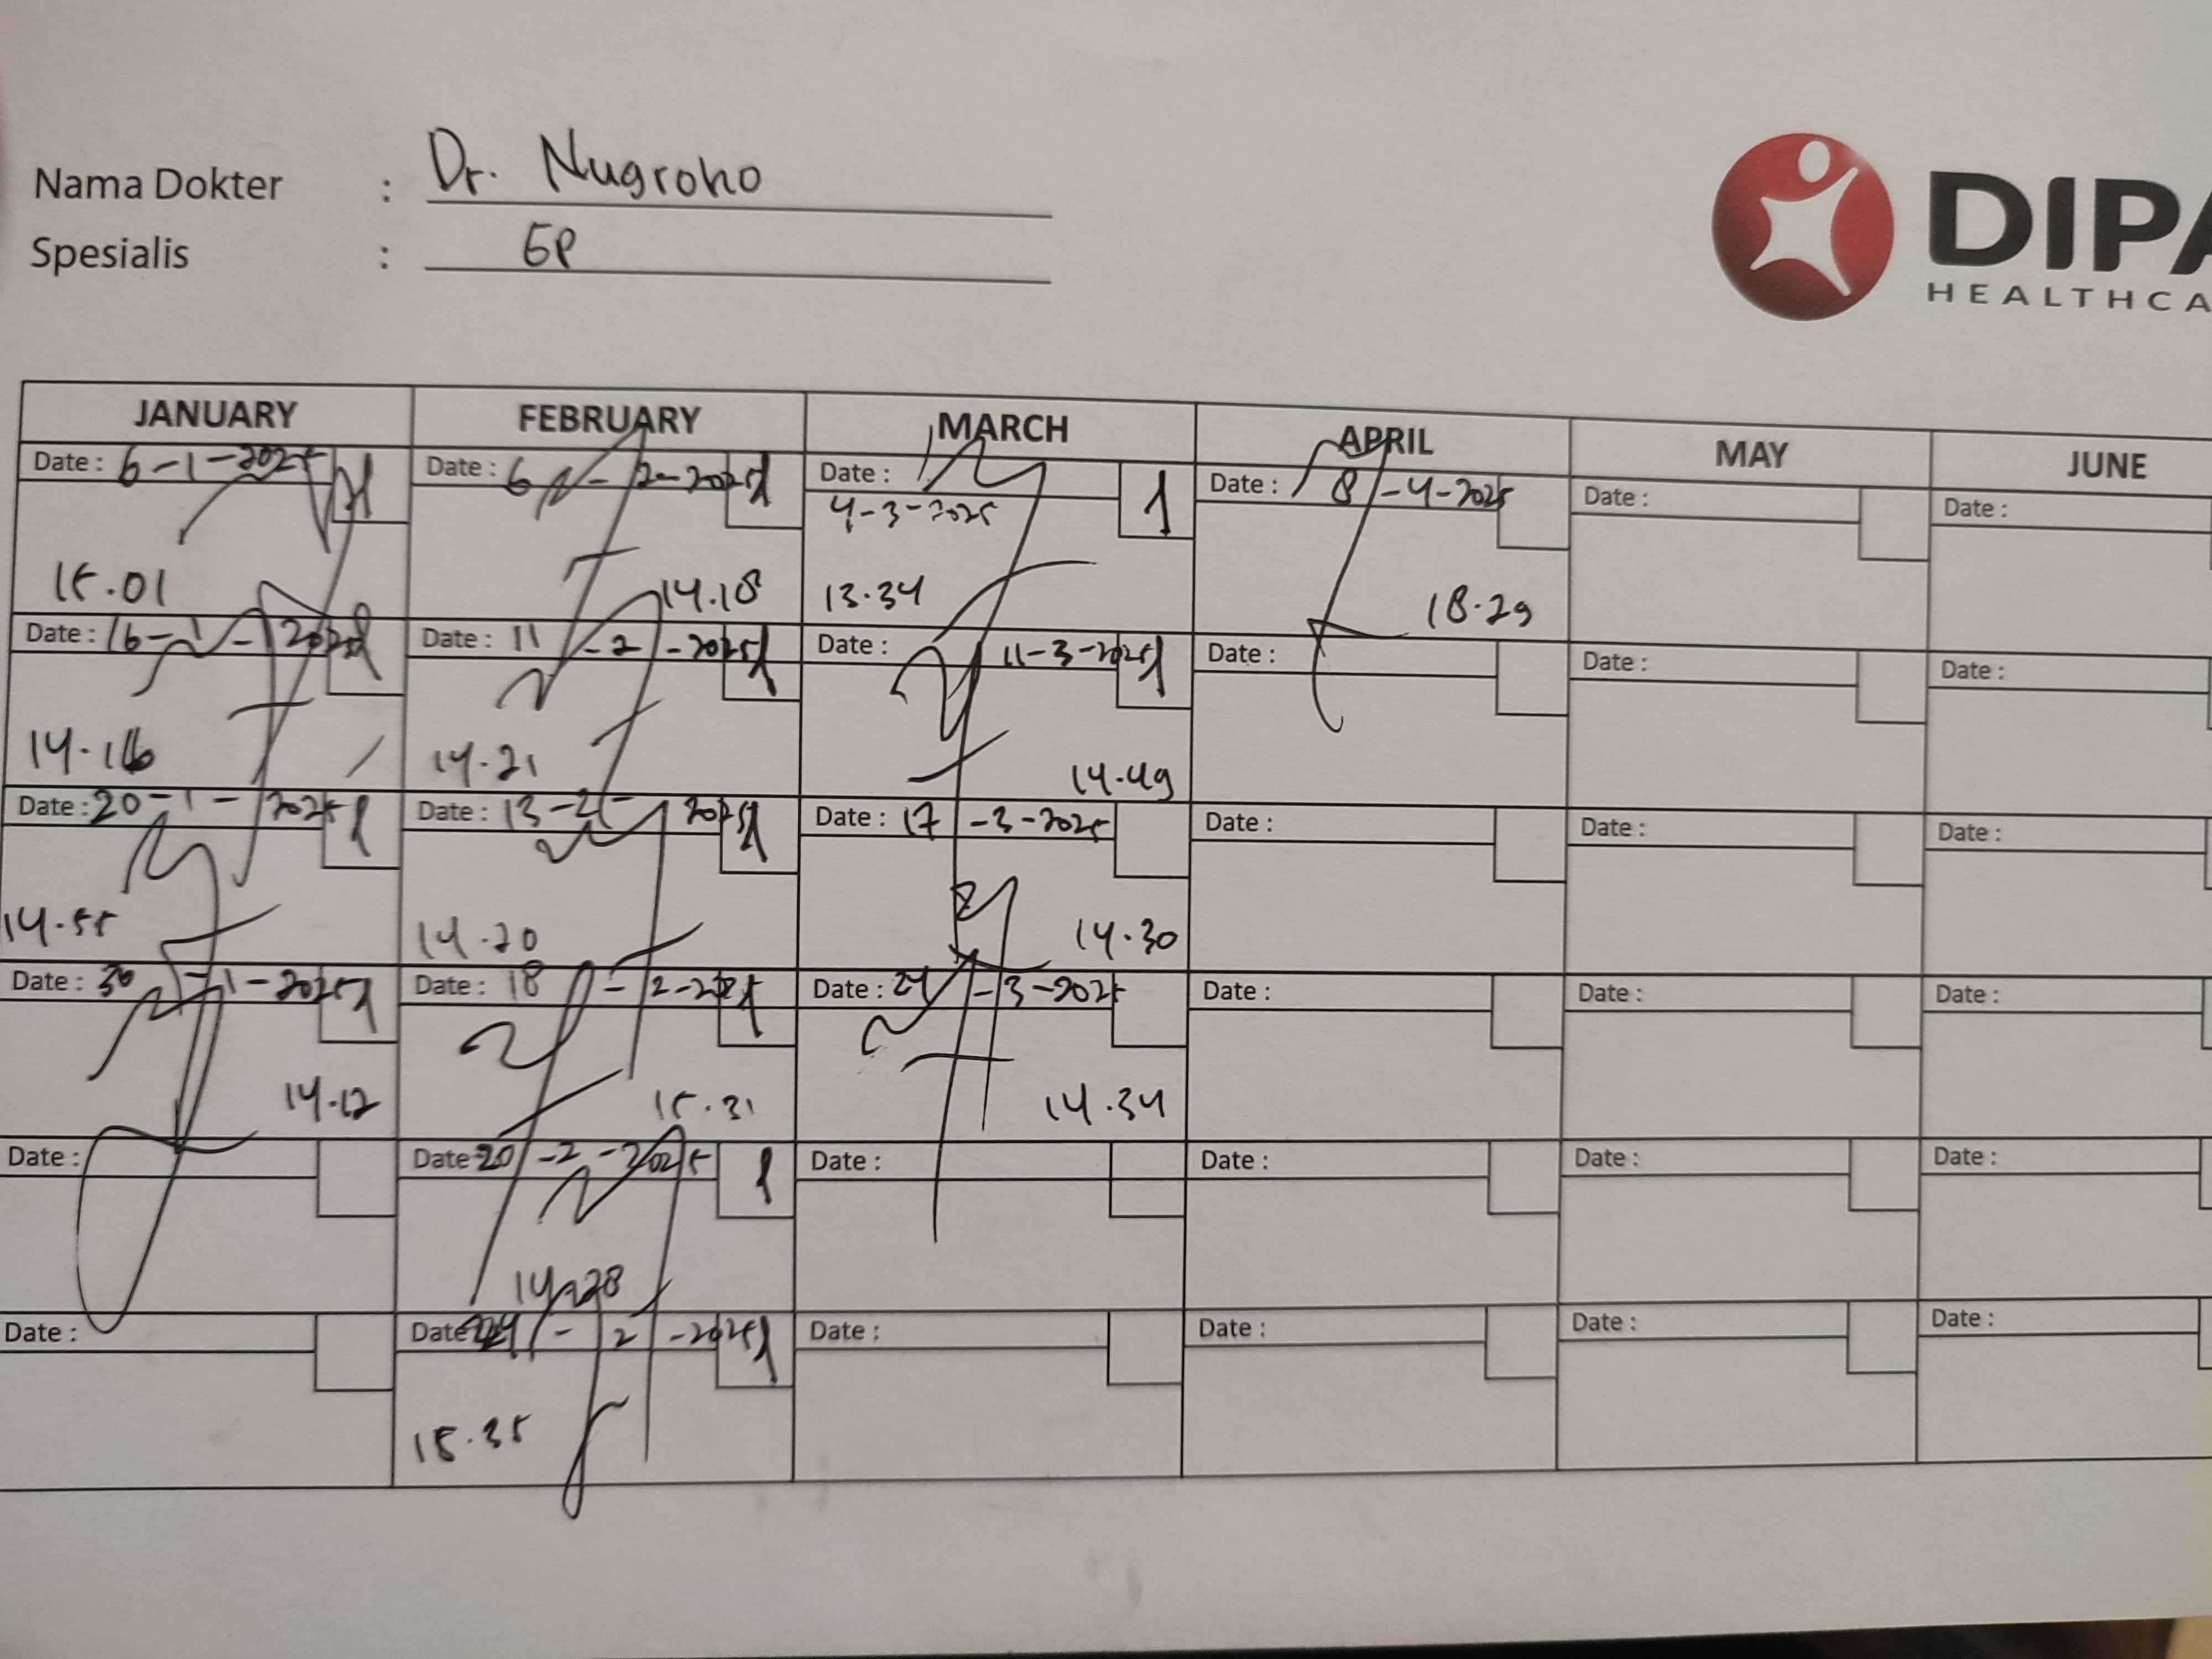 Nama Dokter : Dr. Nugroho
Spesialis : GP
DIPA
HEALTHCA
JANUARY FEBRUARY MARCH APRIL MAY JUNE
Date : 6-1-2025 Date : 6-2-2025 Date : Date : 8-4-2025 Date : Date :
4-3-2025 1
15.01 14.18 13.34 18.29
Date : 16-1-2025 Date : 11-2-2025 Date : 11-3-2025 Date : Date : Date :
14.16 14.21 14.49
Date : 20-1-2025 Date : 13-2-2025 Date : 17-3-2025 Date : Date : Date :
14.55 14.20 14.30
Date : 30-1-2025 Date : 18-2-2025 Date : 24-3-2025 Date : Date : Date :
14.12 15.31 14.34
Date : Date 20-2-2025 1 Date : Date : Date : Date :
14.28
Date : Date 24-2-2025 Date : Date : Date : Date :
15.35